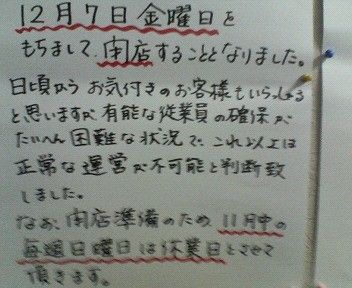 12月7日金曜日を
もちまして、閉店することとなりました。
日頃からお気付きのお客様もいらっしゃる
と思いますが、有能な従業員の確保が
たいへん困難な状況で、これ以上は
正常な運営が不可能と判断致
しました。
なお、閉店準備のため、11月中の
毎週日曜日は休業日とさせて
頂きます。